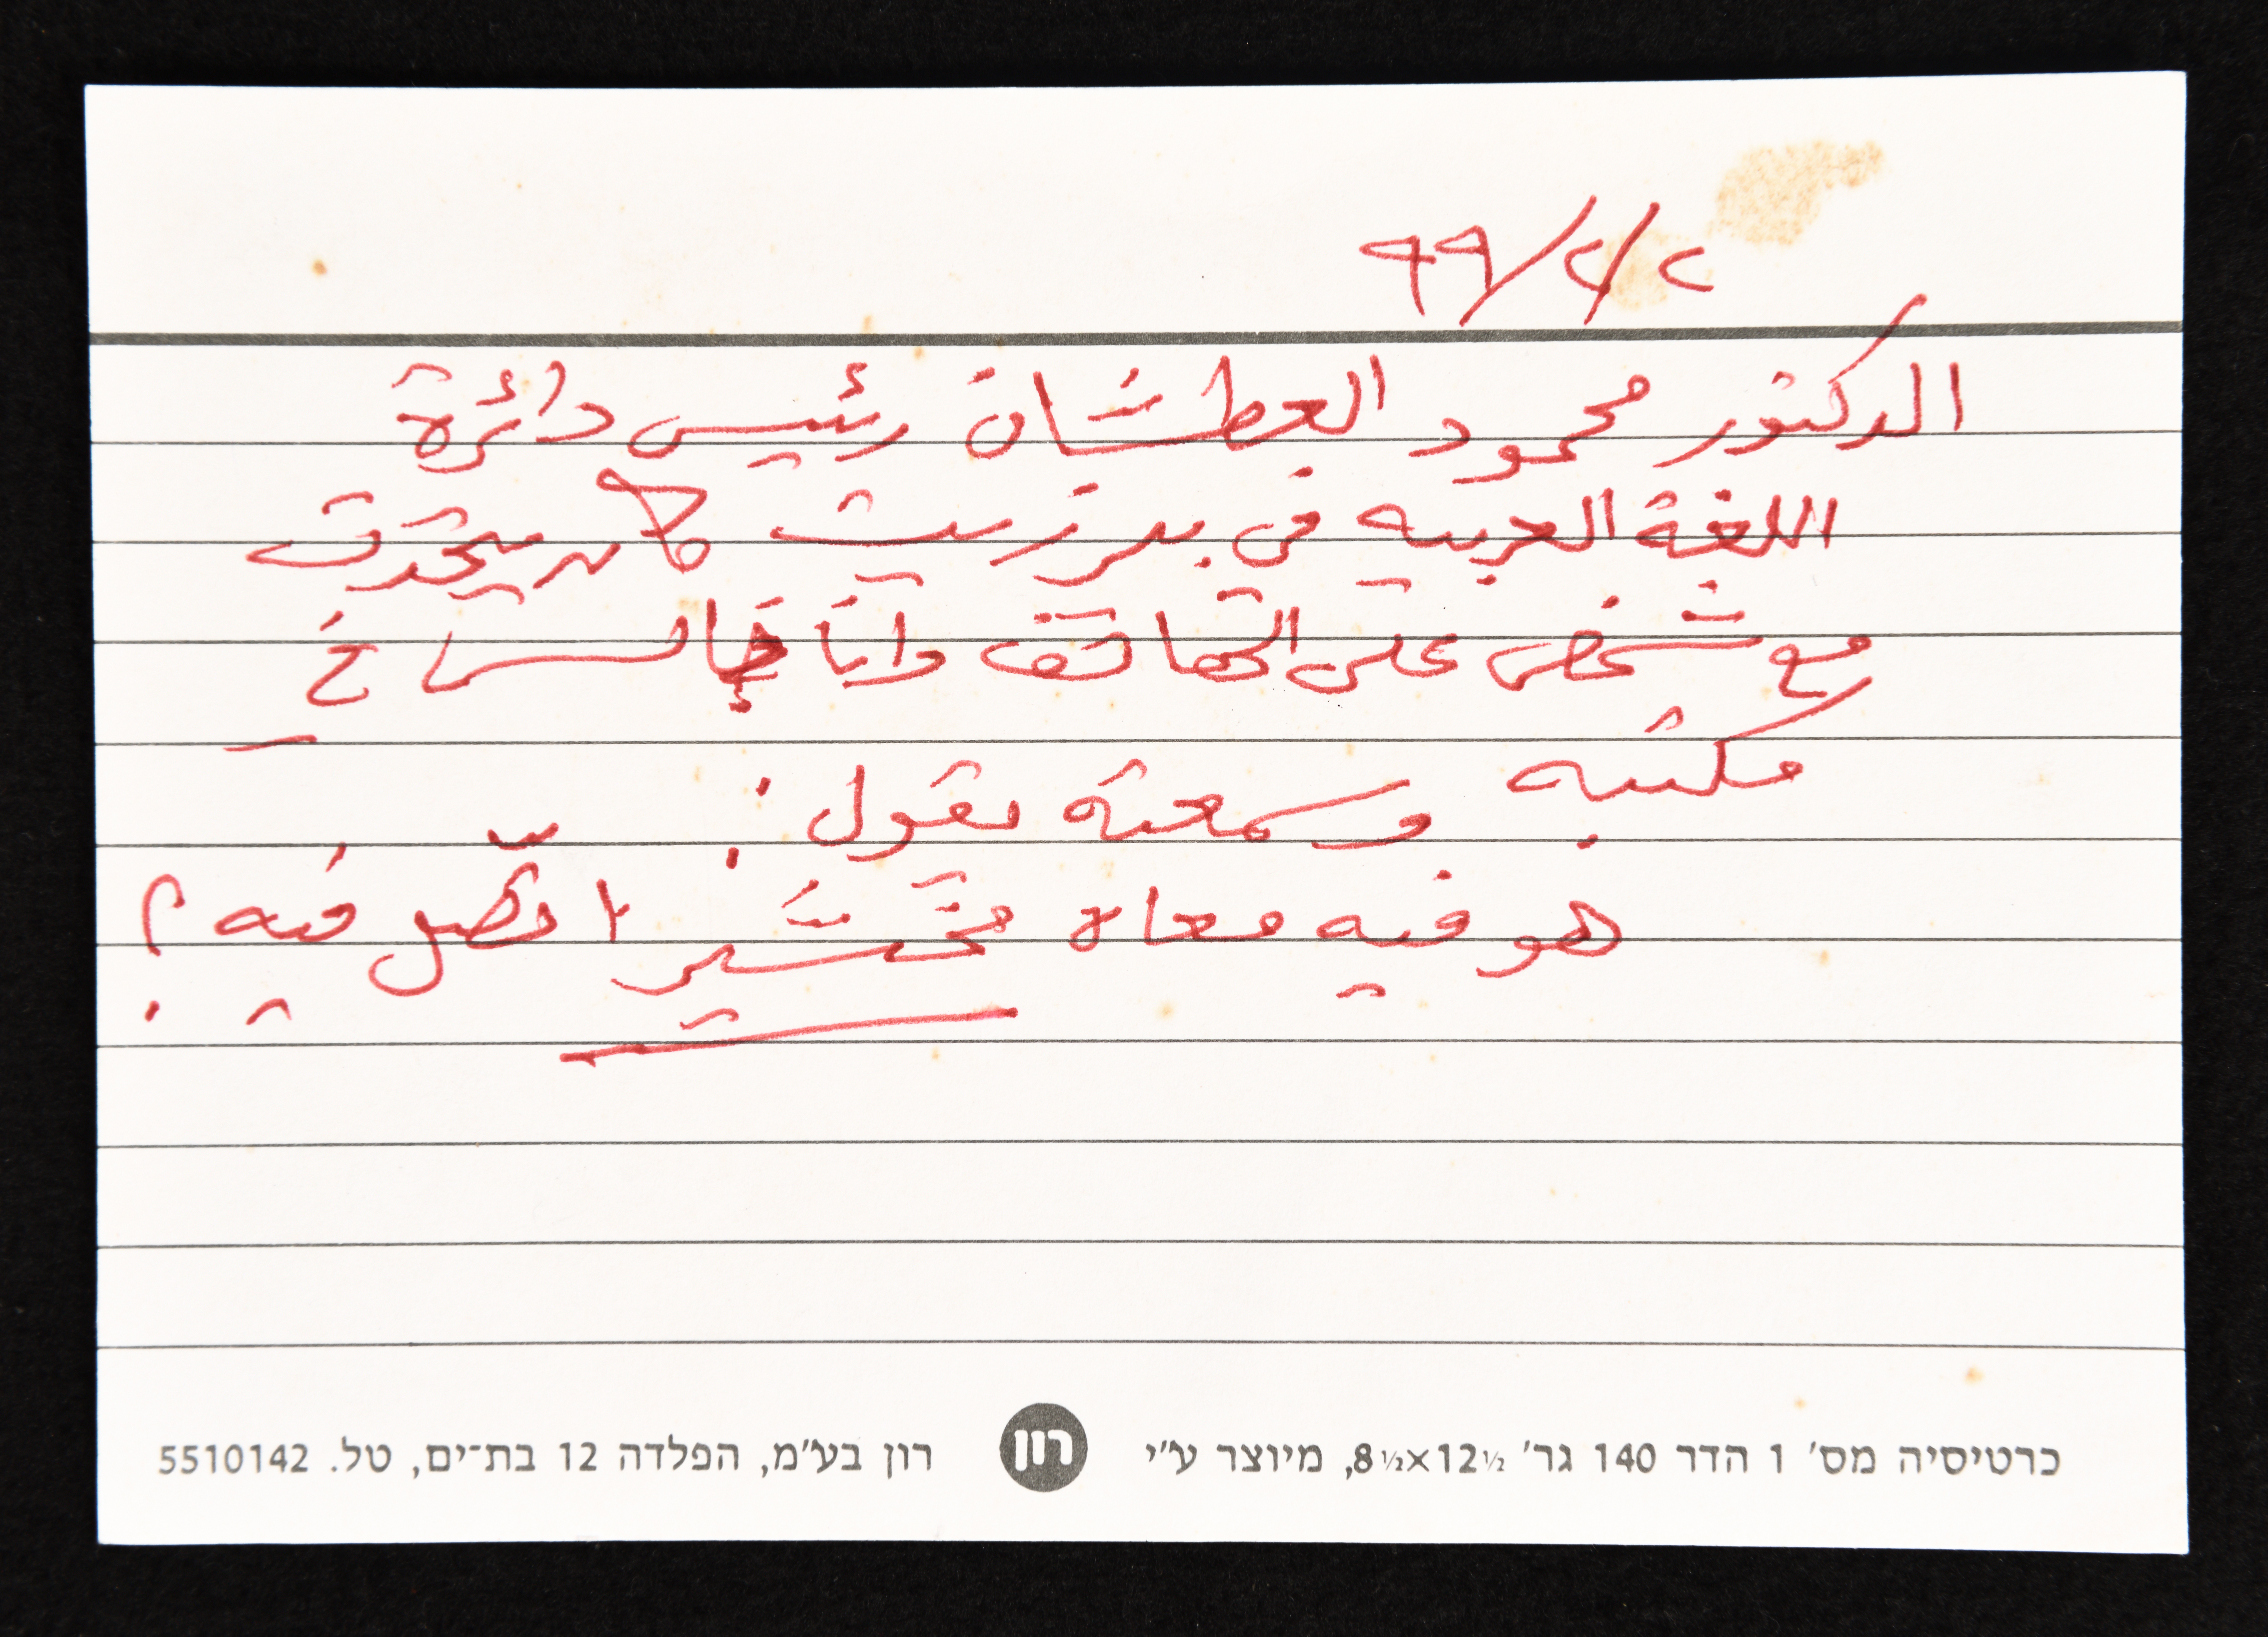 ٢/٢/٩٩
الدكتور محمود العطشان رئيس دائرة
اللغة العربية في بيرزيت كان يتحدث
مع شخص على الهاتف وأنا جالس في
مكتبه وسمعته يقول :
هو فيه معاه تحشير ! فيه ؟
כרטיסיה מס' 1 הדר 140 גר' 8½×12½, מיוצר ע"י רון רון בע"מ, הפלדה 12 בת־ים, טל. 5510142